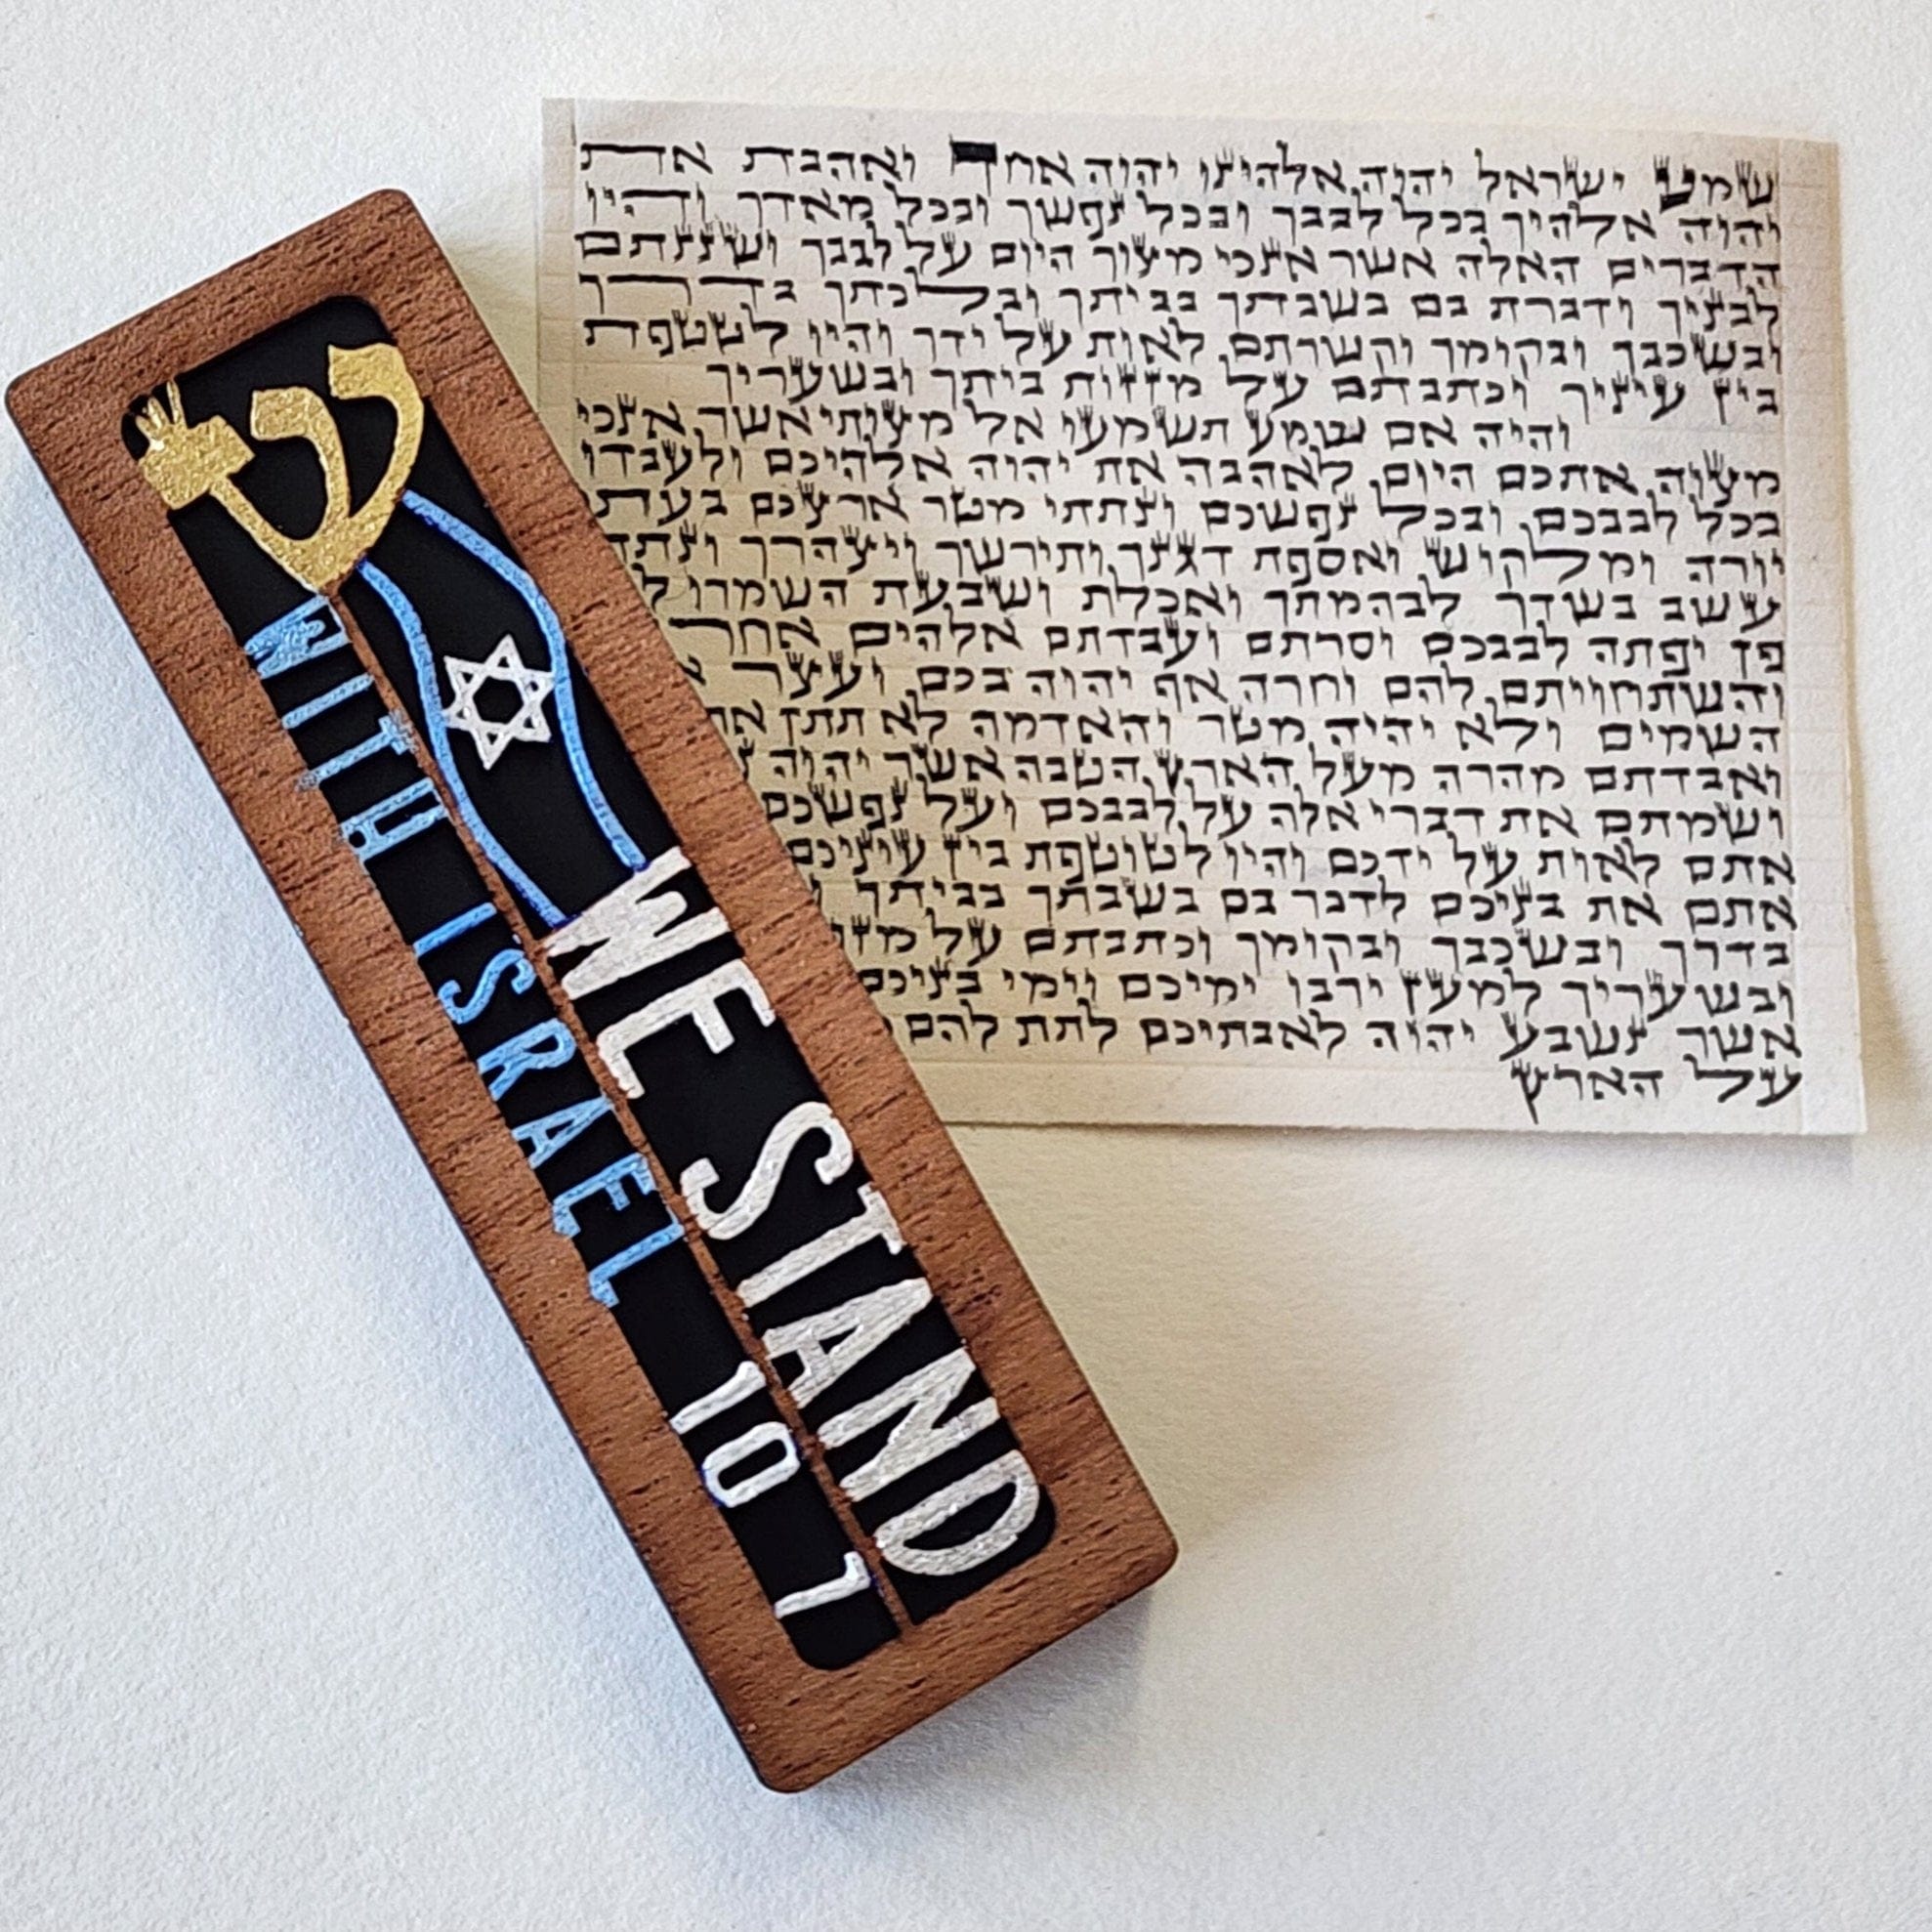 ש
WE STAND
WITH ISRAEL 10 7
שמע ישראל יהוה אלהינו יהוה אחד ואהבת את
יהוה אלהיך בכל לבבך ובכל נפשך ובכל מאדך והיו
הדברים האלה אשר אנכי מצוך היום על לבבך ושננתם
לבניך ודברת בם בשבתך בביתך ובלכתך בדרך
ובשכבך ובקומך וקשרתם לאות על ידך והיו לטטפת
בין עיניך וכתבתם על מזזות ביתך ובשעריך
והיה אם שמע תשמעו אל מצותי אשר אנכי
מצוה אתכם היום לאהבה את יהוה אלהיכם ולעבדו
בכל לבבכם ובכל נפשכם ונתתי מטר ארצכם בעת
יורה ומלקוש ואספת דגנך ותירשך ויצהרך ונתת
עשב בשדך לבהמתך ואכלת ושבעת השמרו ל
פן יפתה לבבכם וסרתם ועבדתם אלהים אחר
והשתחויתם להם וחרה אף יהוה בכם ועצר א
השמים ולא יהיה מטר והאדמה לא תתן את
ואבדתם מהרה מעל הארץ הטבה אשר יהוה נ
ושמתם את דברי אלה על לבבכם ועל נפשכם
אתם לאות על ידכם והיו לטוטפת בין עיניכם
אתם את בניכם לדבר בם בשבתך בביתך ו
בדרך ובשכבך ובקומך וכתבתם על מזו
ובשעריך למען ירבו ימיכם וימי בניכם
אשר נשבע יהוה לאבתיכם לתת להם
על הארץ